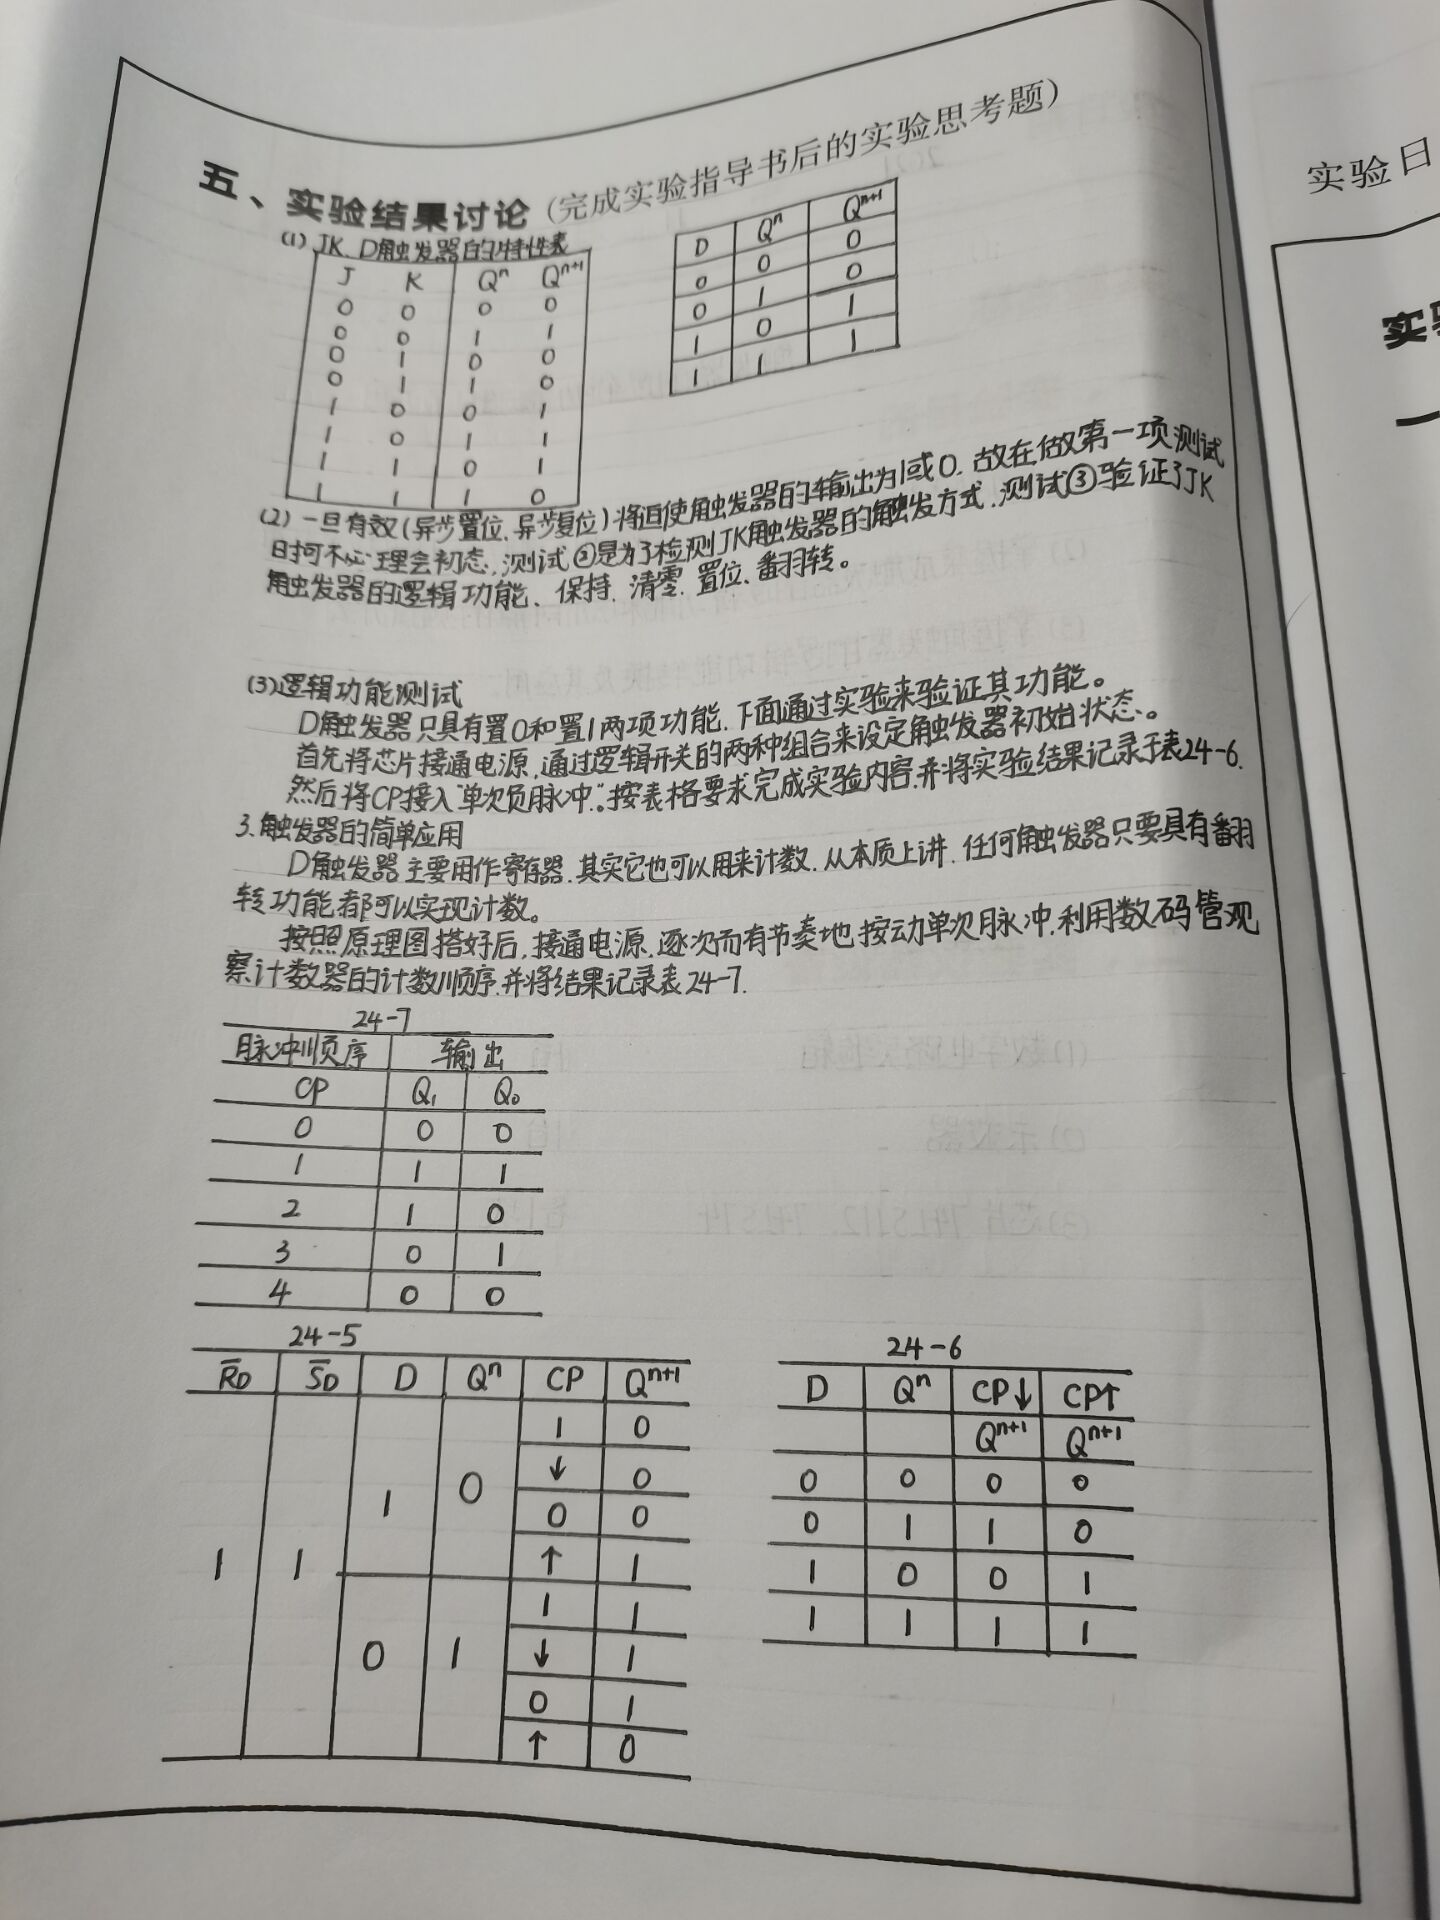 五、实验结果讨论(完成实验指导书后的实验思考题)
(1) JK、D触发器的特性表
J K Qⁿ Qⁿ⁺¹
0 0 0 0
0 0 1 1
0 1 0 0
0 1 1 0
1 0 0 1
1 0 1 1
1 1 0 1
1 1 1 0
D Qⁿ Qⁿ⁺¹
0 0 0
0 1 0
1 0 1
1 1 1
(2) 一旦有效(异步置位、异步复位)将迫使触发器的输出为1或0. 故在做第一项测试
时可不必理会初态, 测试②是为了检测JK触发器的触发方式, 测试③验证了JK
触发器的逻辑功能、保持、清零、置位、翻转。
(3)逻辑功能测试
D触发器只具有置0和置1两项功能, 下面通过实验来验证其功能。
首先将芯片接通电源, 通过逻辑开关的两种组合来设定触发器初始状态。
然后将CP接入"单次负脉冲"。按表格要求完成实验内容,并将实验结果记录于表24-6.
3.触发器的简单应用
D触发器主要用作寄存器,其实它也可以用来计数. 从本质上讲, 任何触发器只要具有翻
转功能都可以实现计数。
按照原理图搭好后, 接通电源, 逐次而有节奏地按动单次脉冲,利用数码管观
察计数器的计数顺序,并将结果记录表24-7.
24-7
脉冲顺序 输出
CP Q₁ Q₀
0 0 0
1 1 1
2 1 0
3 0 1
4 0 0
24-5
R̅D S̅D D Qⁿ CP Qⁿ⁺¹
1 1 1 0 1 0
↓ 0
0 0
↑ 1
0 1 1 1
↓ 1
0 1
↑ 0
24-6
D Qⁿ CP↓ CP↑
Qⁿ⁺¹ Qⁿ⁺¹
0 0 0 0
0 1 1 0
1 0 0 1
1 1 1 1
实验日